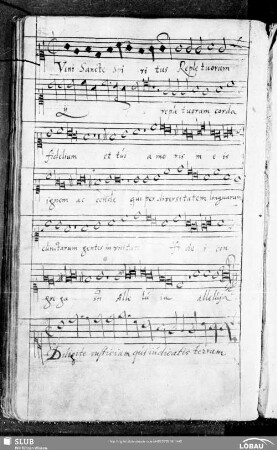 Veni Sancte Spi ri tus Reple tuorum
ij reple tuorum corda
fidelium et tui a mo ris in e is
ignem ac cende qui per diversitatem linguarum
cunctarum gentes in unitate fi de i con
gre ga sti Alle lu ia alleluja
Diligite iustitiam qui iudicatis terram
SLUB
Wir führen Wissen.
LÖBAU